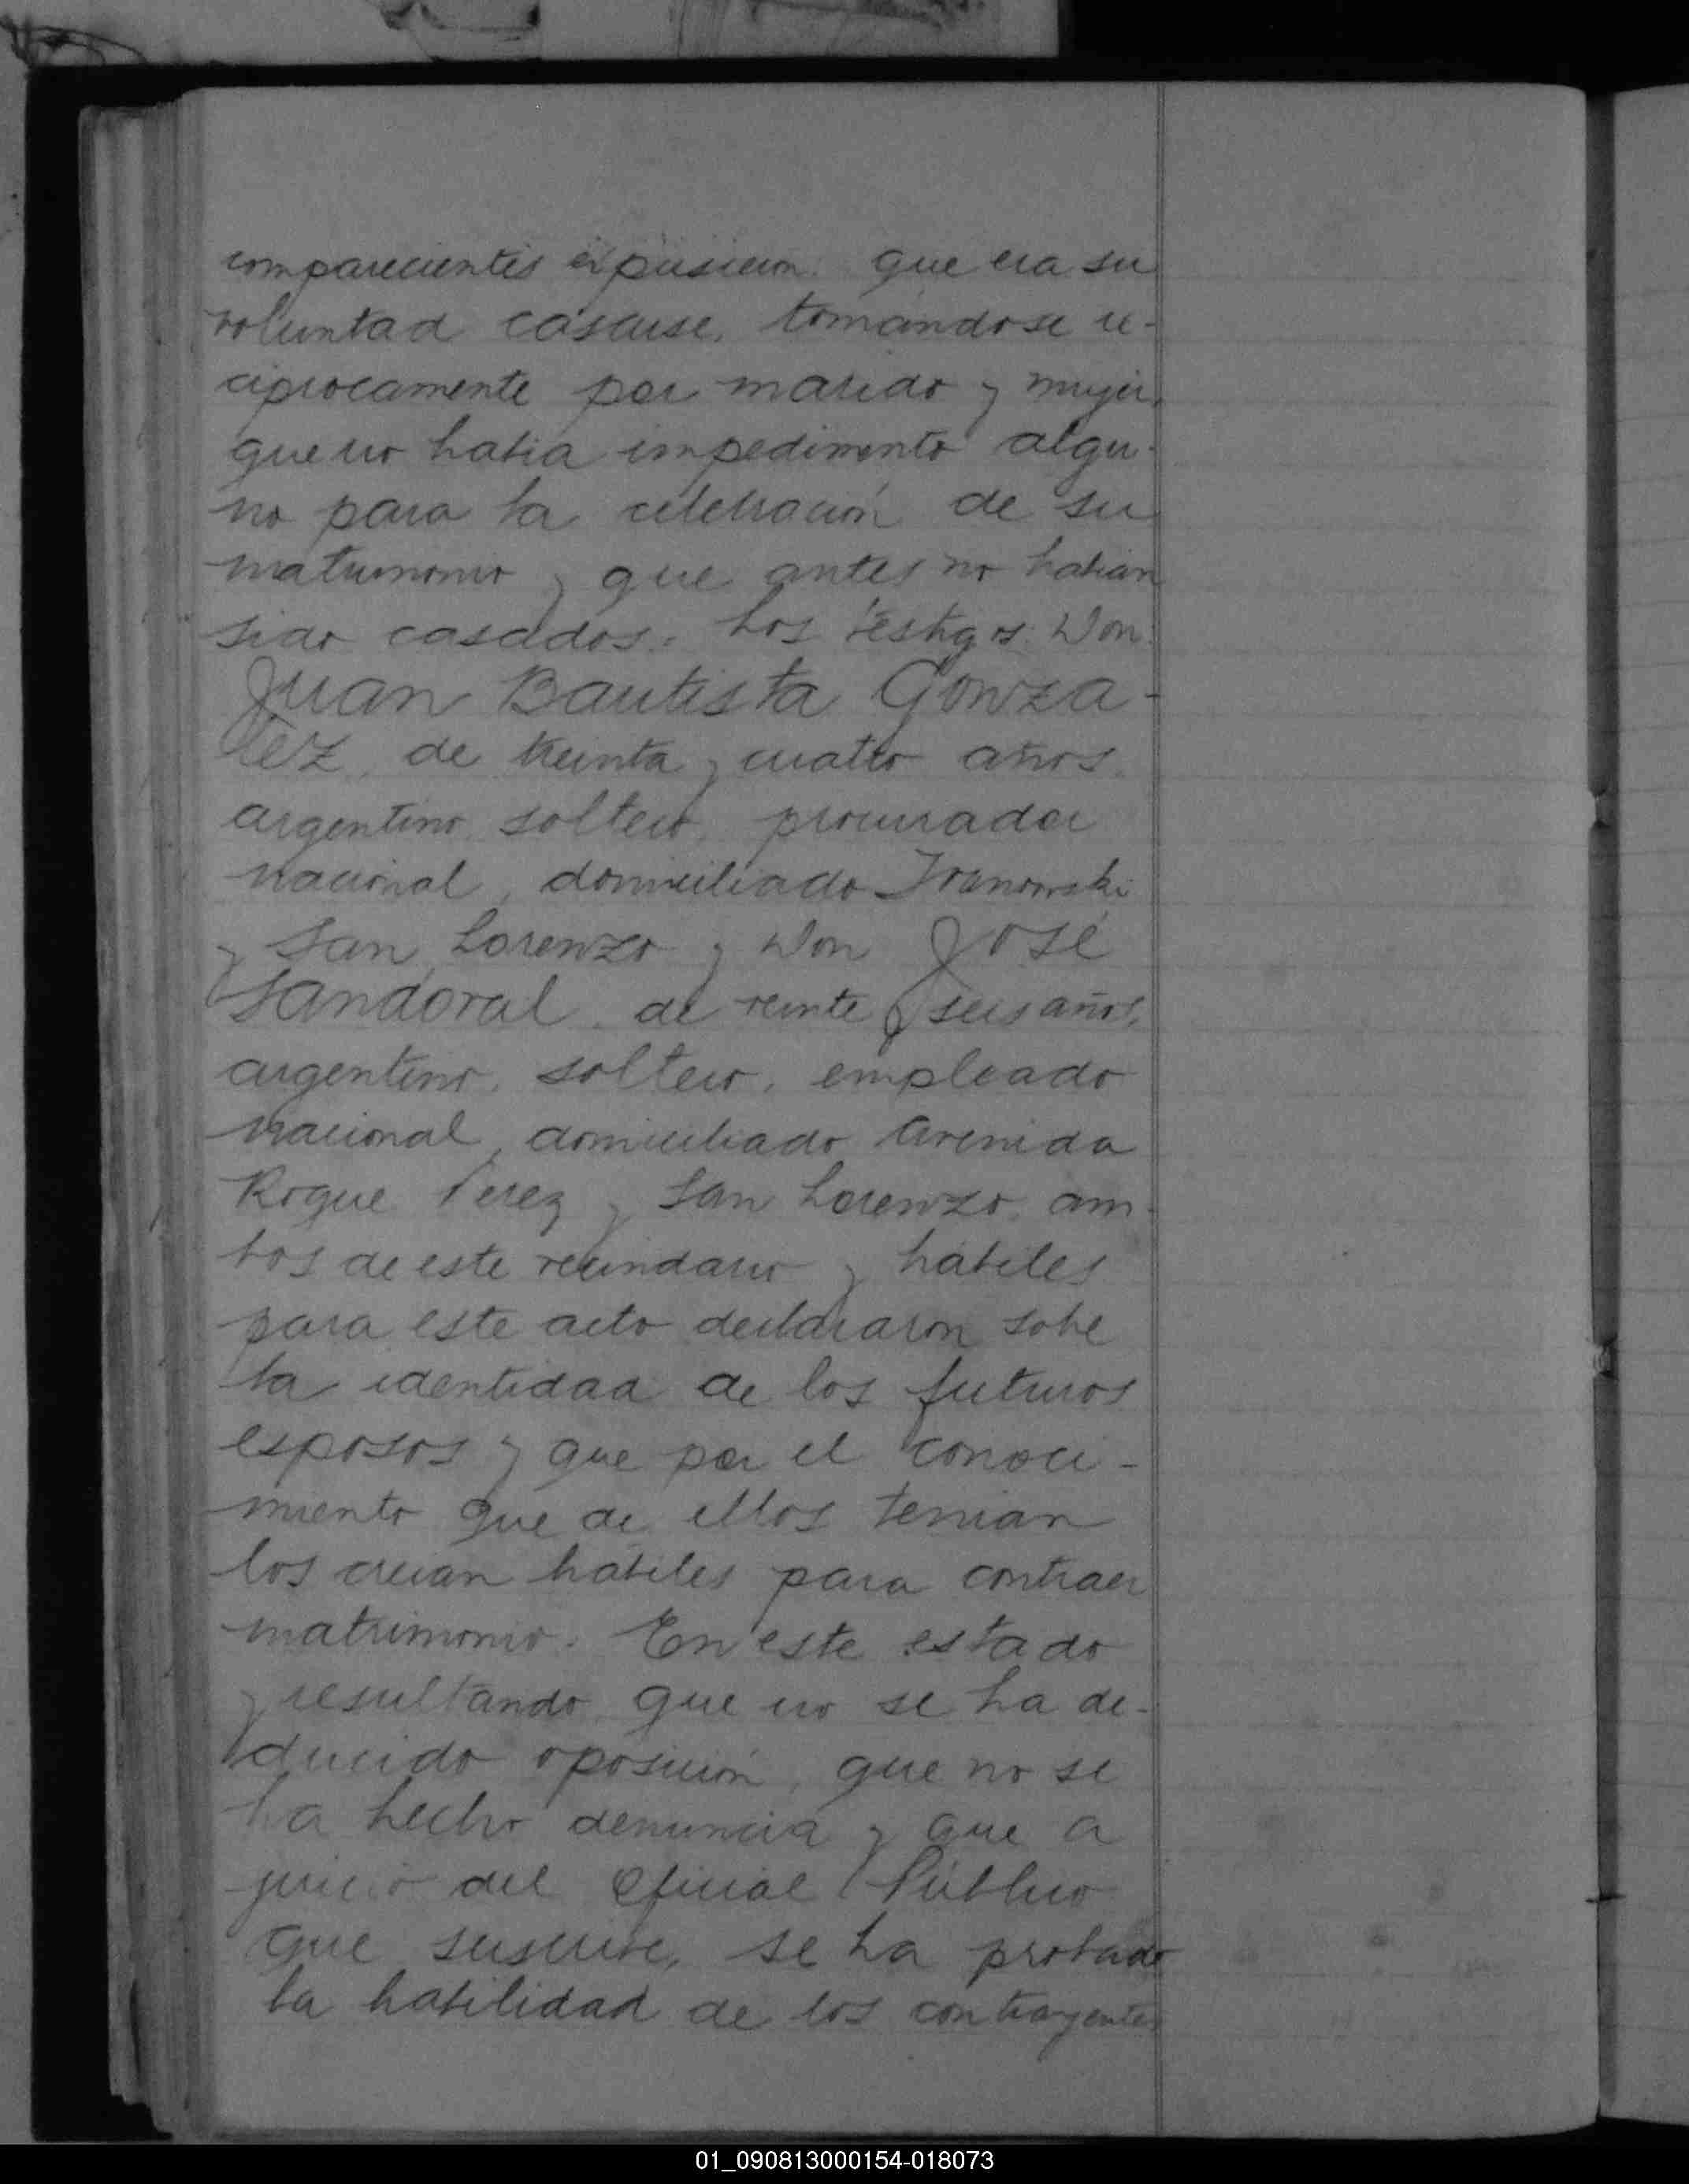 comparecientes expusieron que era su
voluntad casarse, tomándose re-
ciprocamente por marido y mujer,
que no habia impedimento algu-
no para la celebración de su
matrimonio y que antes no habian
sido casados. Los testigos: Don
Juan Bautista Gonza-
lez, de treinta y cuatro años,
argentino, soltero, procurador
nacional, domiciliado Ivanowski
y San Lorenzo y Don José
Sandoval, de veinte y seis años,
argentino, soltero, empleado
nacional, domiciliado Avenida
Roque Perez y San Lorenzo, am-
bos de este vecindario y hábiles
para este acto declararon sobre
la identidad de los futuros
esposos y que por el conoci-
miento que de ellos tenian
los creian hábiles para contraer
matrimonio. En este estado
y resultando que no se ha de-
ducido oposición, que no se
ha hecho denuncia y que a
juicio del Oficial Público
que suscribe, se ha probado
la habilidad de los contrayentes
01_090813000154-018073